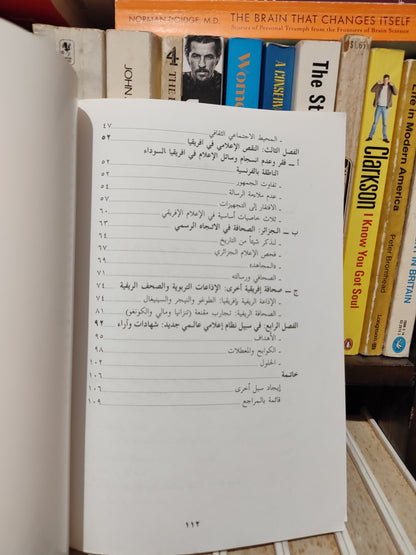 NORMAN DOIDGE, M.D. THE BRAIN THAT CHANGES ITSELF
Stories of Personal Triumph from the Frontiers of Brain Science
JOHN
4
THE
Wome
A CONSERV
The St
$1.65
Clarkson
I Know You Got Soul
Life in Modern America
Peter Bromhead
Longman
IN BRITAIN
ـ المحيط الاجتماعي الثقافي ٤٧
الفصل الثالث: النقص الإعلامي في افريقيا ٥٢
أ ــ فقر وعدم انسجام وسائل الإعلام في افريقيا السوداء
الناطقة بالفرنسية ٥٢
ـ تفاوت الجمهور ٥٤
ـ عدم ملاءمة الرسالة ٥٧
ـ الافتقار إلى التجهيزات ٦٠
ـ ثلاث خاصيات أساسية في الإعلام الإفريقي ٦٣
ب ــ الجزائر: الصحافة في الاتجاه الرسمي
ـ لنذكر شيئاً من التاريخ
ـ فحص الإعلام الجزائري
ـ «المجاهد»
ـ الصحافي ورسالته
ج ــ صحافة إفريقية أخرى: الإذاعات التربوية والصحف الريفية ٧٤
ـ الإذاعة الريفية بإفريقيا: الطوغو والنيجر والسينيغال ٧٤
ـ الصحافة الريفية: تجارب مقنعة (تنزانيا ومالي والكونغو)
الفصل الرابع: في سبيل نظام إعلامي عالمي جديد: شهادات وآراء ٩٢
ـ الأهداف
ـ الكوابح والمعطلات ٩٨
ـ الحلول ١٠٢
خاتمة ١٠٦
إيجاد سبل أخرى ١٠٦
قائمة بالمراجع ١٠٩
١١٢